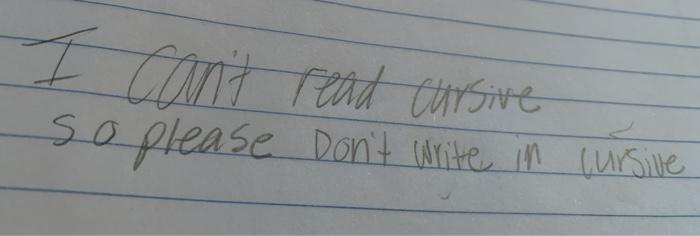 I can't read cursive
so please Don't write in cursive